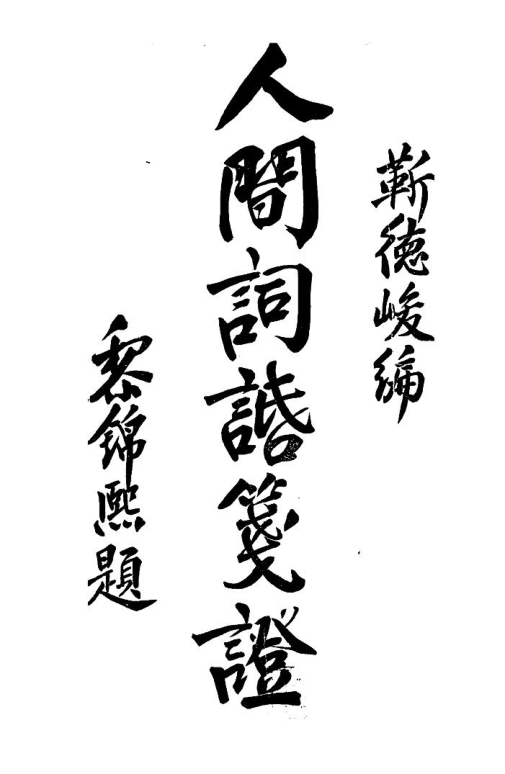 靳德峻編
人間詞諙箋證
黎錦熙題